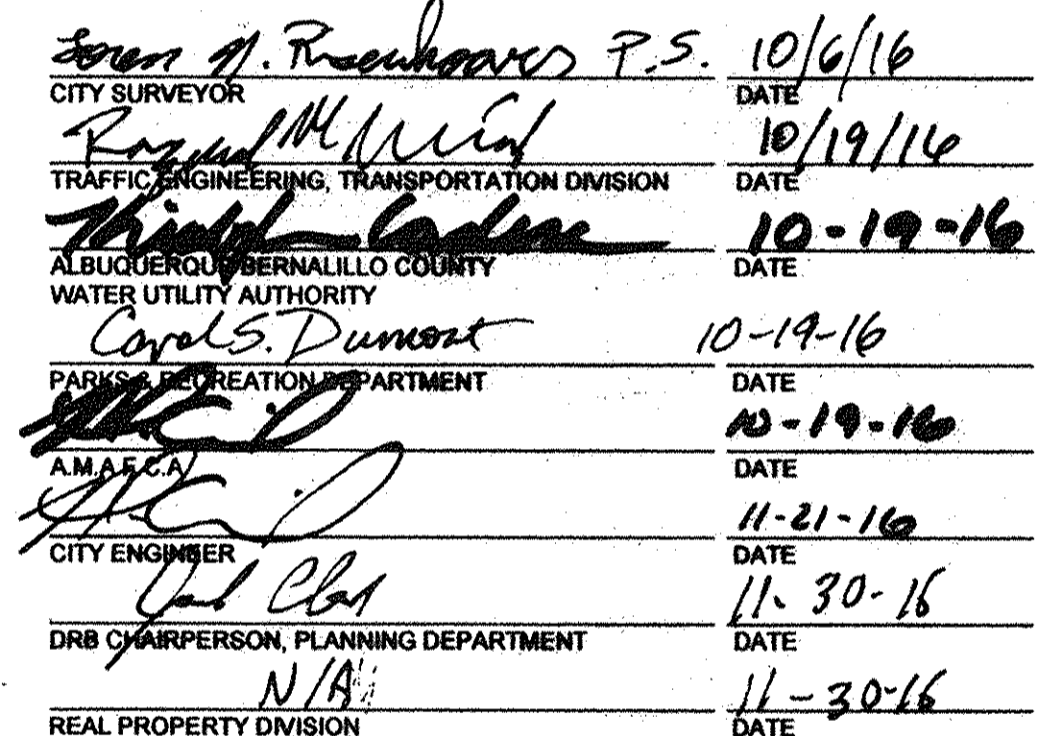 Loren N. Risenhoover P.S. 10/6/16
CITY SURVEYOR DATE
10/19/16
TRAFFIC ENGINEERING, TRANSPORTATION DIVISION DATE
10-19-16
ALBUQUERQUE BERNALILLO COUNTY DATE
WATER UTILITY AUTHORITY
Carol S. Dumont 10-19-16
PARKS & RECREATION DEPARTMENT DATE
10-19-16
A.M.A.F.C.A. DATE
11-21-16
CITY ENGINEER DATE
11-30-16
DRB CHAIRPERSON, PLANNING DEPARTMENT DATE
N/A 11-30-16
REAL PROPERTY DIVISION DATE